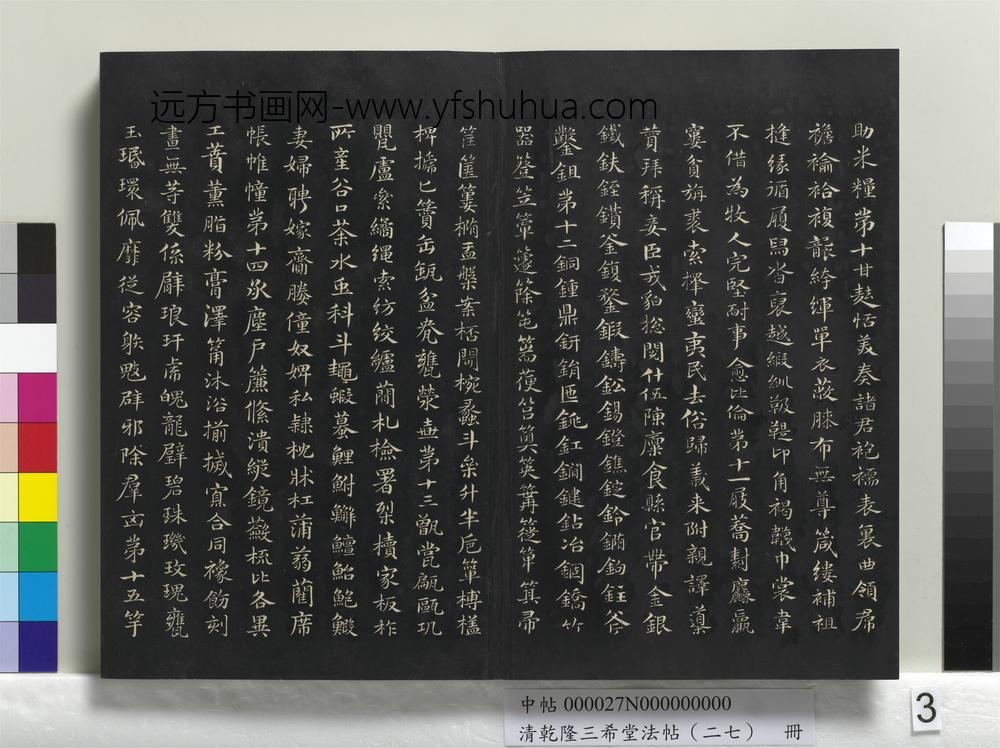 远方书画网-www.yfshuhua.com
助米糧第十甘麩恬美奏諸君袍襦表裏曲領帬
襜褕袷複襲袴褌單衣蔽膝布無尊箴縷補袒
縫緣循履舄沓裒越緞紃靸鞮卬角褐韤巾裳韋
不借為牧人完堅耐事愈比倫第十一屐蕎
窶貧旃裘索擇蠻夷民去俗歸義来附親譯導
贊拜稱妾臣戎貊捴閱什伍陳廩食縣官帶金銀
鐵鈇錐鑽釜鍑鍪鍛鑄鈆錫鐙鐎錠鈴鏑鉤鈺斧
鑿鉏第十二銅鍾鼎鈃銷匜銚釭鐗鍵鉆冶錮鐈竹
器簦笠簟籧篨笔篙
筐篋簍椭盂槃案桮閜椀蠡斗枲升半卮簞榑榼
椑榹匕籫缶瓿盆
甖盧纍繘繩索紡絞纑蕳札檢署槧櫝家板柞
所産谷口茶水虫科斗蠅蝦蟇鯉鮒
妻婦聘嫁齎媵僮奴婢私隷枕牀杠蒲蒻藺席
帳帷幢第十四承塵戶簾絛潰縱鏡籢梳比各異
工蕡薰脂粉膏澤筩沐浴揃搣寡合同襐飭刻
畫無等雙係臂琅玕虎魄龍璧碧珠璣玫瑰甕
玉玦環佩靡從容射鬾群邪除羣凶第十五竽
中帖 000027N000000000
清乾隆三希堂法帖（二七） 冊
3